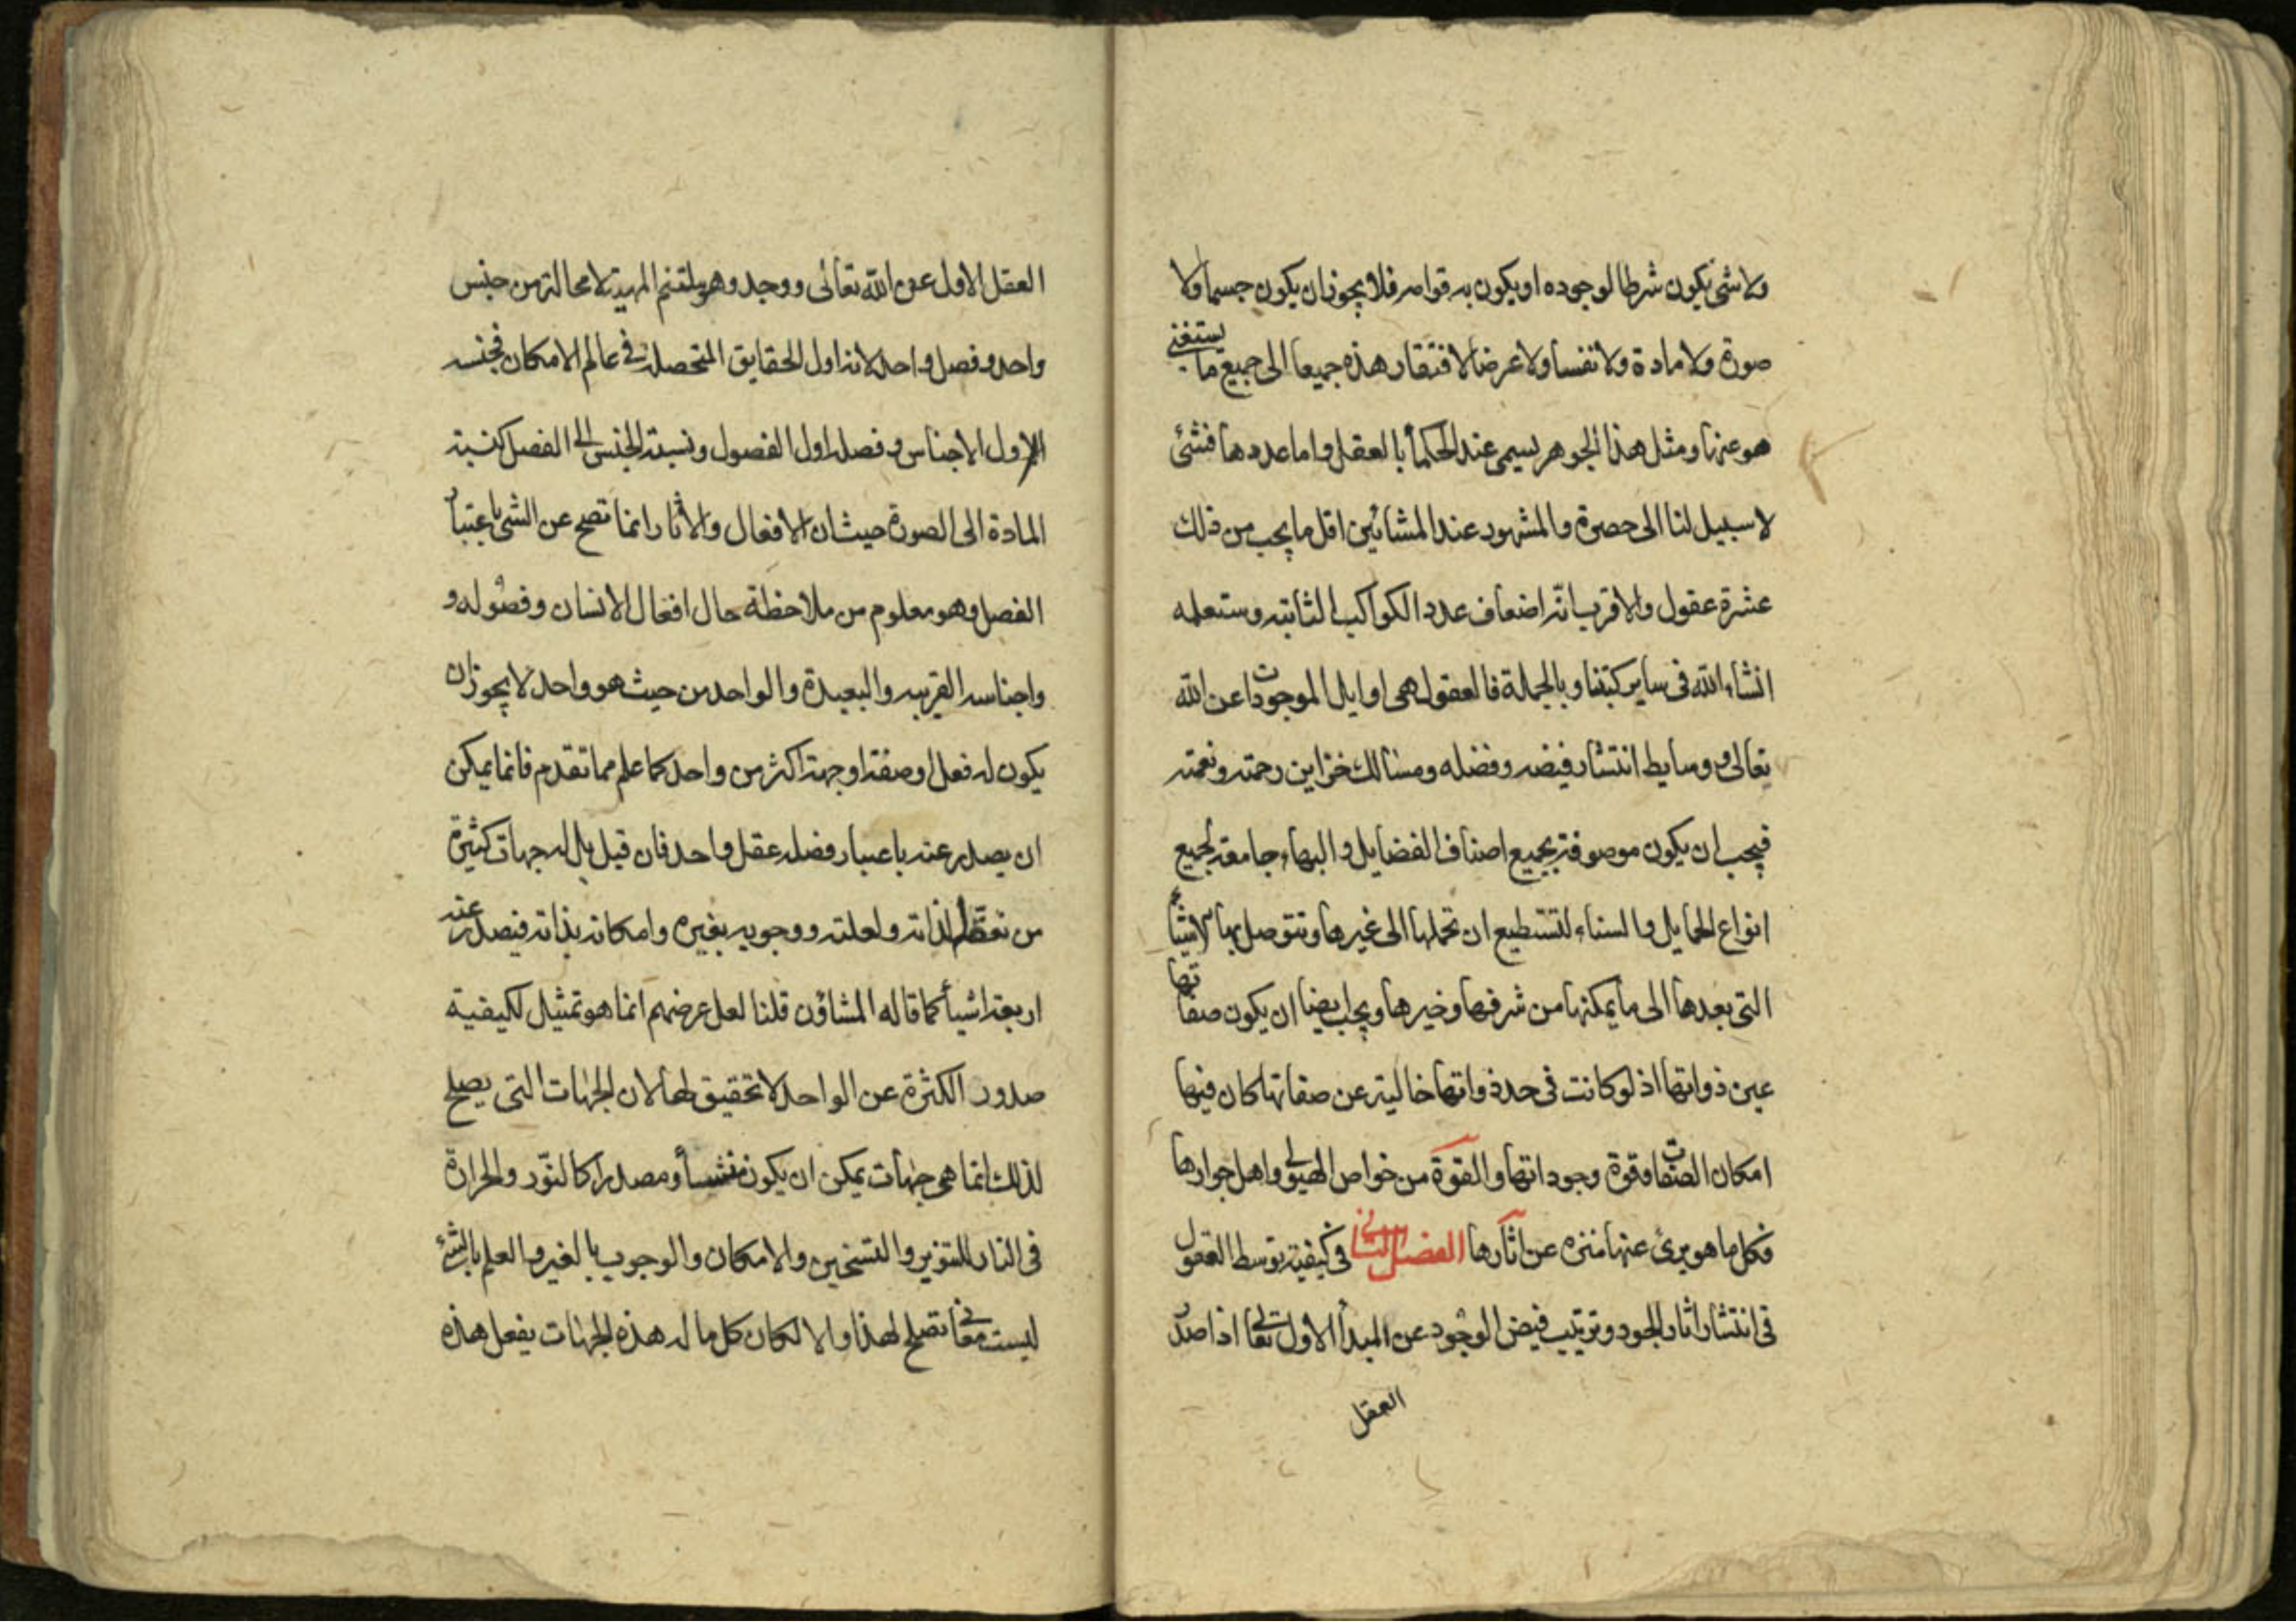 ولا شئ يكون شرطا لوجوده او يكون به قوامه فلا يجوز ان يكون جسما ولا
صورة ولا مادة ولا نفسا ولا عرضا لافتقار هذه جميعا الى جميع ما يستغنى
هو عنها ومثل هذا الجوهر يسمى عند الحكمأ بالعقل واما عددها فشئ
لا سبيل لنا الى حصره والمشهور عند المشائين اقل ما يجب من ذلك
عشرة عقول والاقرب انّه اضعاف عدد الكواكب الثابته وستعلمه
انشاء الله فى ساير كتبنا وبالجملة فالعقول هى اوايل الموجودات عن الله
تعالى ووسايط انتشار فيضه وفضله ومسالك خزاين رحمته ونعمته
فيجب ان يكون موصوفة بجميع اصناف الفضايل والبهاء جامعة لجميع
انواع الجمايل والسناء لتستطيع ان تحملها الى غيرها وتتوصل بها الاشيأ
التى بعدها الى ما يمكنها من شرفها وخيرها ويجب ايضا ان يكون صفاتها
عين ذواتها اذ لو كانت فى حد ذواتها خالية عن صفاتها كان فيها
امكان الصفات وقوة وجوداتها والقوة من خواص الهيولى واهل جوارها
فكل ما هو برئ عنها منزه عن اثارها الفصل الثانى فى كيفية توسط العقول
فى انتشار اثار الجود وترتيب فيض الوجود عن المبدأ الاول تعالى اذا صدر
العقل
العقل الاول عن الله تعالى ووجد وهو ملتئم المهية لا محالة من جنس
واحد وفصل واحد لانه اول الحقايق المتحصلة فى عالم الامكان فجنسه
اول الاجناس وفصله اول الفصول ونسبة الجنس الى الفصل كنسبة
المادة الى الصورة حيث ان الافعال والاثار انما تصح عن الشئ باعتبار
الفصل وهو معلوم من ملاحظة حال افعال الانسان وفصوله و
واجناسه القريبه والبعيدة والواحد من حيث هو واحد لا يجوز ان
يكون له فعل او صفة او جهة اكثر من واحد كما علم مما تقدم فانما يمكن
ان يصدر عنه باعتبار فصله عقل واحد فان قيل بل له جهات كثيرة
من تعقله لذاته ولعلته ووجوبه بغيره وامكانه بذاته فيصدر عنه
اربعة اشيأ كما قاله المشاؤن قلنا لعل عرضهم انما هو تمثيل لكيفية
صدور الكثرة عن الواحد لا تحقيق لها لان الجهات التى يصلح
لذلك انما هى جهات يمكن ان يكون منشأ ومصدرا كالنّور والحرارة
فى النار للتنوير والتسخين والامكان والوجوب بالغير والعلم بالشئ
ليست معانى تصلح لهذا والا لكان كل ما له هذه الجهات يفعل هذه